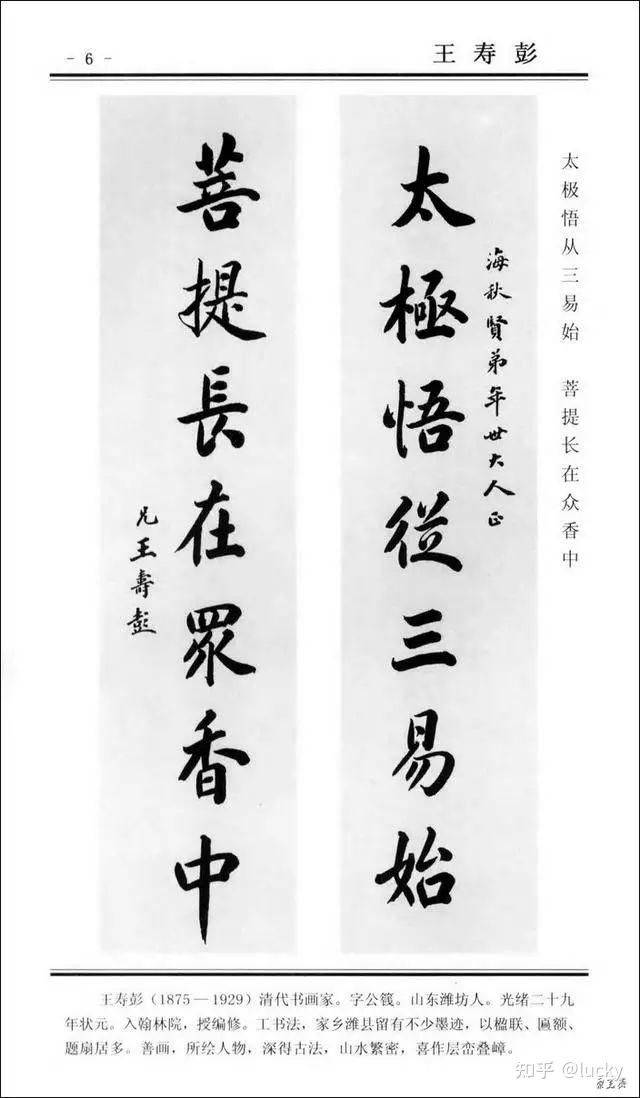 - 6 -
王寿彭
太极悟从三易始 菩提长在众香中
海秋賢弟年世大人正
太極悟從三易始
菩提長在眾香中
兄王壽彭
王寿彭(1875—1929)清代书画家。字公篯。山东潍坊人。光绪二十九
年状元。入翰林院,授编修。工书法,家乡潍县留有不少墨迹,以楹联、匾额、
题扇居多。善画,所绘人物,深得古法,山水繁密,喜作层峦叠嶂。
知乎 @lucky